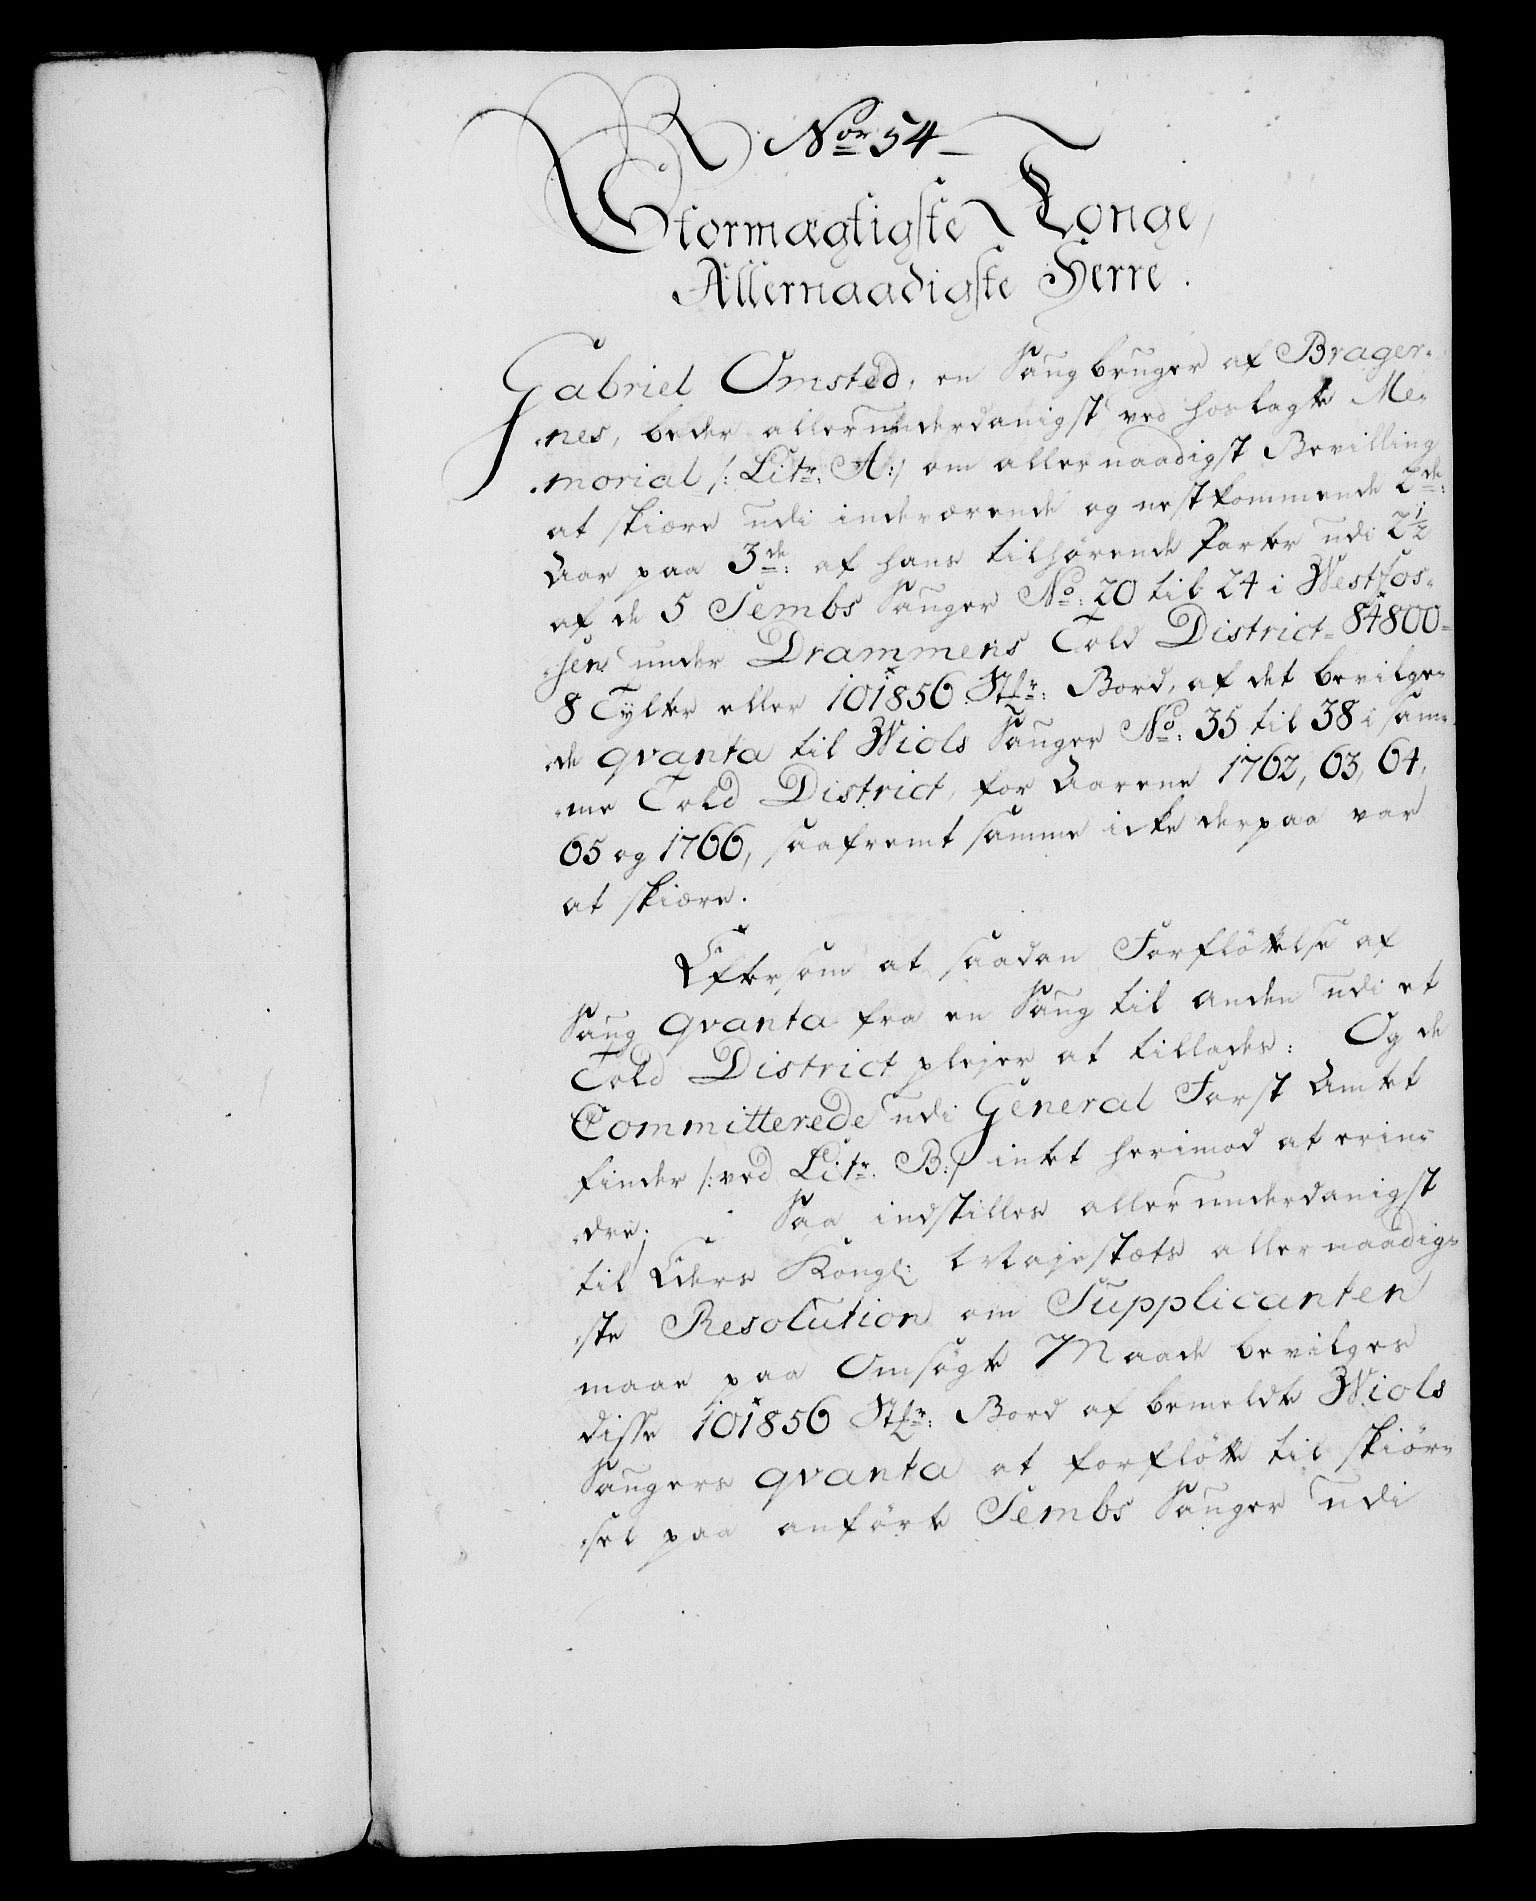 Nor 54
Stormægtigste Konge,
Allernaadigste Herre.
Gabriel Omsted, en Saugbruger af Brager-
nes, beder allerunderdanigst ved hoslagte Me-
morial /: Litr: A :/ om allernaadigst Bevilling
at skiære udi indeværende og nestkommende 2de:
Aar paa 3de: af hans tilhørende Parter udi 2½
af de 5 Sembs Sauger No: 20 til 24 i Westfos-
sen under Drammens Told District 84800-
8 Tylter eller 101856 Stkr: Bord, af det bevilge-
de qvanta til Wiols Sauger No: 35 til 38 i sam-
me Told District, for Aarene 1762, 63, 64,
65 og 1766, saafremt samme icke derpaa var
at skiære.
Eftersom at saadan Forfløttelse af
Saug qvanta fra en Saug til anden udi et
Told District plejer at tillades: Og de
Committerede udi General Forst Amtet
finder /: ved Litr. B :/ intet herimod at erin-
dre; Saa indstilles allerunderdanigst
til Eders Kongl: Majestæts allernaadig-
ste Resolution om Supplicanten
maae paa Omsøgte Maade bevilges
disse 101856 Stkr: Bord af bemeldte Wiols
Saugers qvanta at forfløtte til skiør-
sel paa anførte Sembs Sauger udi